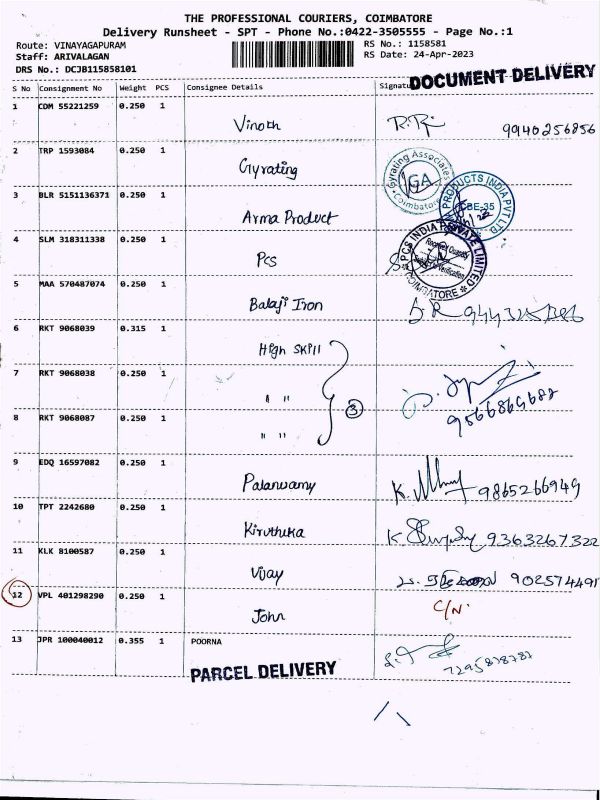 THE PROFESSIONAL COURIERS, COIMBATORE
Delivery Runsheet - SPT - Phone No.:0422-3505555 - Page No.:1
Route: VINAYAGAPURAM RS No.: 1158581
Staff: ARIVALAGAN RS Date: 24-Apr-2023
DRS No.: DCJB115858101
DOCUMENT DELIVERY
S No Consignment No Weight PCS Consignee Details
1 CDM 55221259 0.250 1
Vinoth 9940256856
2 TRP 1593084 0.250 1
Gyrating
Gyrating Associates
GA
Coimbatore
3 BLR 5151136371 0.250 1
Arma Product
PRODUCTS INDIA PVT LTD
CBE-35
4 SLM 318311338 0.250 1
Pcs
PCS INDIA PRIVATE LIMITED
Received Quantity
Subject to Verification
COIMBATORE
5 MAA 570487074 0.250 1
Balaji Iron
6 RKT 9068039 0.315 1
High Skill
7 RKT 9068038 0.250 1
" "
3
8 RKT 9068087 0.250 1
" "
9566869687
9 EDQ 16597082 0.250 1
Palanwamy K. 9865266949
10 TPT 2242680 0.250 1
Kiruthika 9363267322
11 KLK 8100587 0.250 1
Vijay 902574491
12 VPL 401298290 0.250 1
John C/N
13 JPR 100040012 0.355 1 POORNA
7295878787
PARCEL DELIVERY